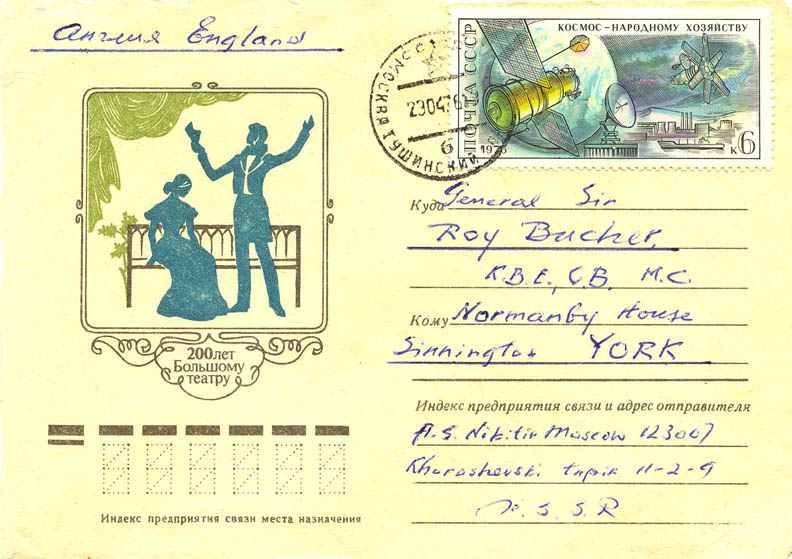 Англия England
КОСМОС – НАРОДНОМУ ХОЗЯЙСТВУ
ПОЧТА СССР
1976
к6
МОСКВА ТУШИНСКИЙ
230476
6
Куда General Sir
Roy Bucher,
K.B.E., C.B. M.C.
Кому Normanby House
Sinnington YORK
200лет
Большому
театру
Индекс предприятия связи и адрес отправителя
A.S. Nikitin Moscow 123007
Khoroshevski tupik 11-2-9
U.S.S.R
Индекс предприятия связи места назначения